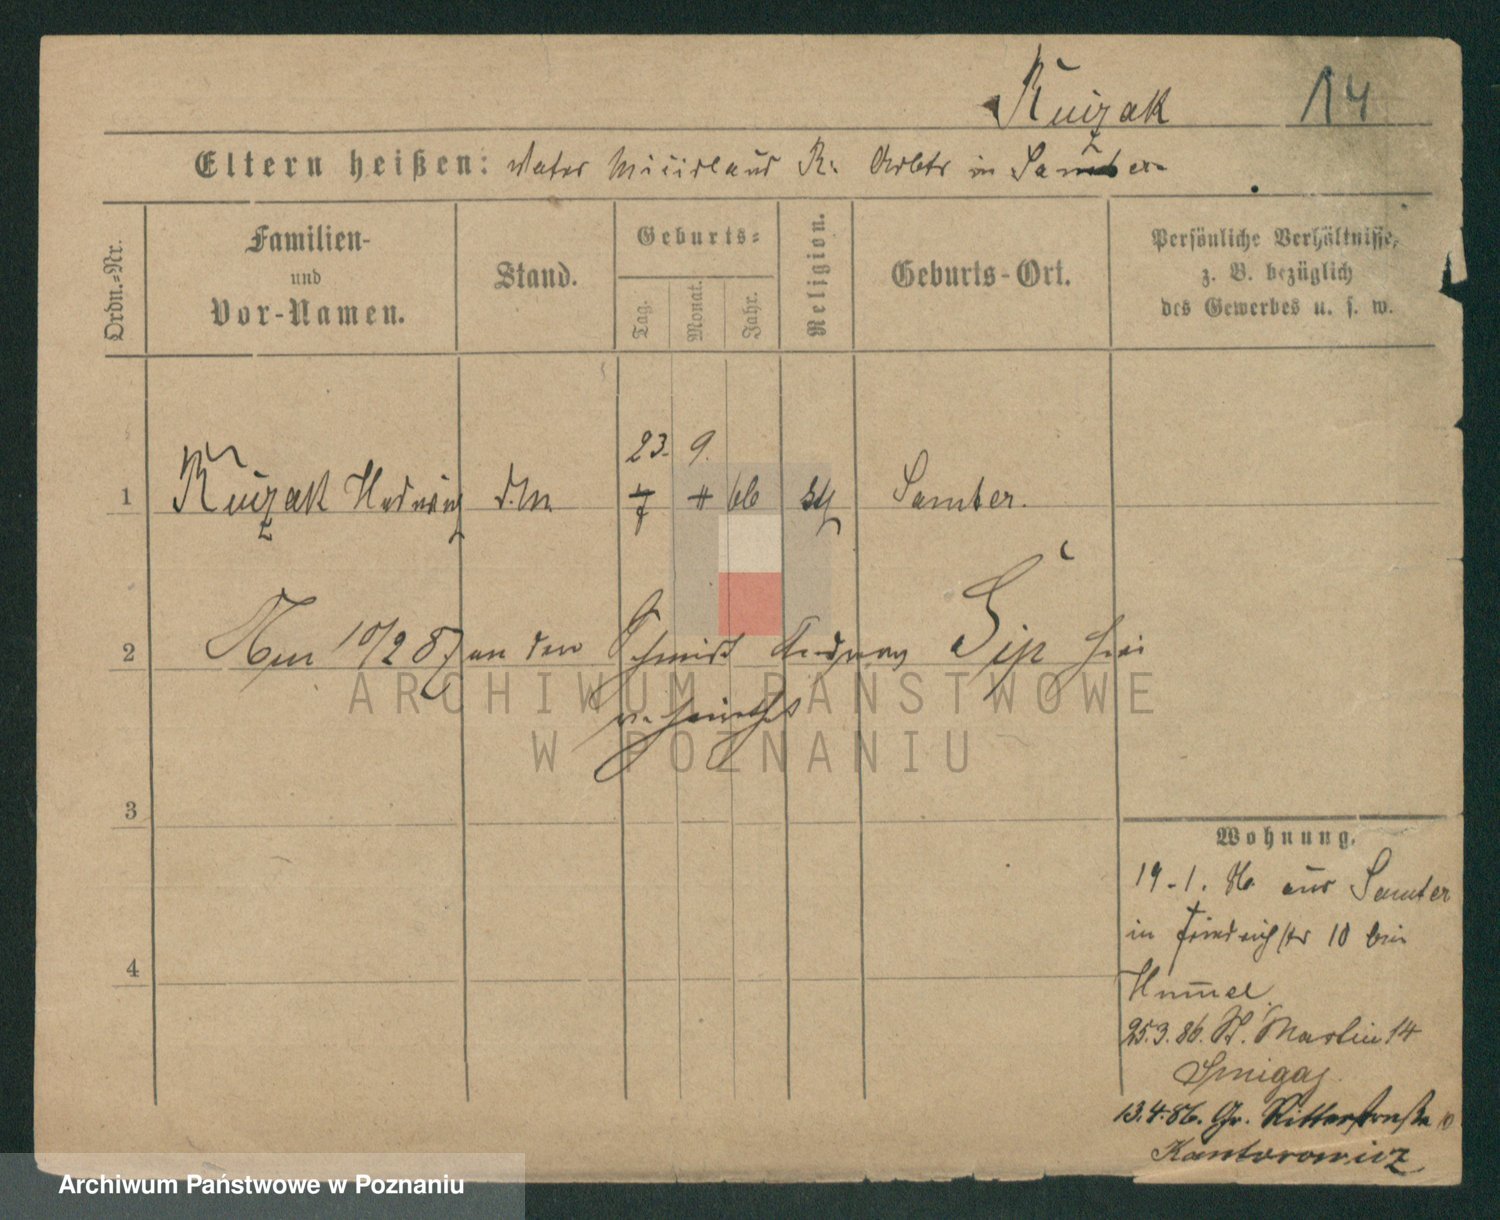 Kuizak 14
Eltern heißen: Vater R. Arbtr in Samter
Ordn.-Nr.
Familien- und Vor-Namen.
Stand.
Geburts-
Tag. Monat. Jahr.
Religion.
Geburts-Ort.
Persönliche Verhältnisse, z. B. bezüglich des Gewerbes u. s. w.
23. 9.
1 Kuizak Hedwig d.M. 7 4 66 Samter.
2 10/2 87 an den Schmidt Sip hier
verheirathet
3
4
Wohnung.
19-1. 86 aus Samter
in Friedrichstr 10 bei
Hummel
25.3.86. St. Martin 14
13.4.86. Gr. Ritterstraße 10
Kantorowicz
ARCHIWUM PAŃSTWOWE
W POZNANIU
Archiwum Państwowe w Poznaniu